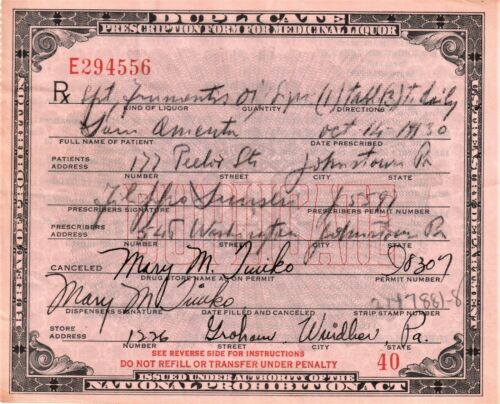 DUPLICATE
PRESCRIPTION FORM FOR MEDICINAL LIQUOR
E294556
Rx Spt Frumentii
KIND OF LIQUOR QUANTITY DIRECTIONS
Sam Amenta Oct 14 1930
FULL NAME OF PATIENT DATE PRESCRIBED
PATIENTS ADDRESS 177 St Johnstown Pa
NUMBER STREET CITY STATE
DUPLICATE
PRESCRIBERS SIGNATURE PRESCRIBERS PERMIT NUMBER
PRESCRIBERS ADDRESS 545 Washington Johnstown Pa
NUMBER STREET CITY STATE
CANCELED Mary M. 
DRUG STORE NAME AS ON PERMIT PERMIT NUMBER
Mary M 
DISPENSERS SIGNATURE DATE FILLED AND CANCELED STRIP STAMP NUMBER
STORE ADDRESS 1226 Graham Windber Pa.
NUMBER STREET CITY STATE
SEE REVERSE SIDE FOR INSTRUCTIONS
DO NOT REFILL OR TRANSFER UNDER PENALTY 40
ISSUED UNDER AUTHORITY OF THE
NATIONAL PROHIBITION ACT